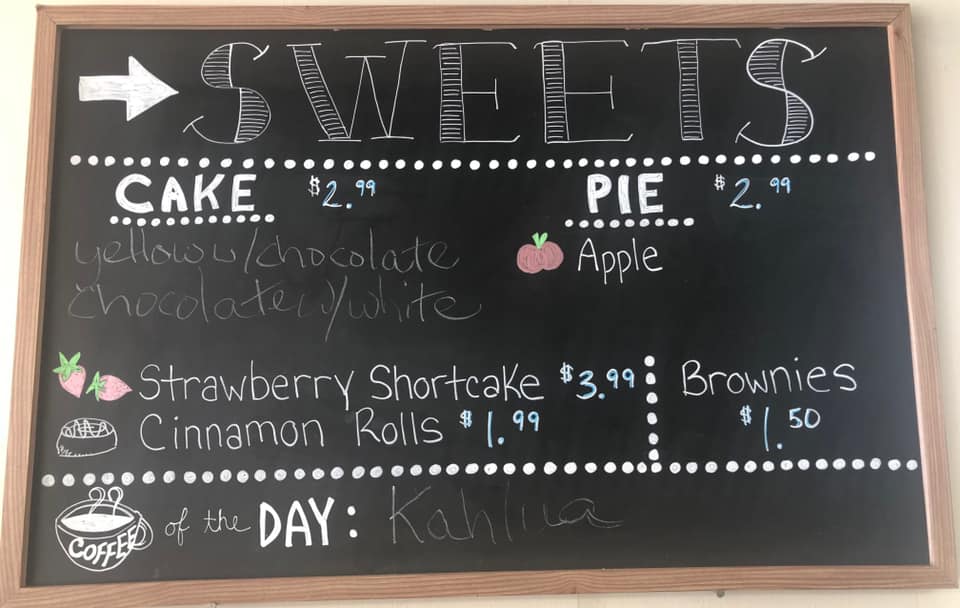 SWEETS
CAKE $2.99
yellow w/chocolate
chocolate w/white
PIE $2.99
Apple
Strawberry Shortcake $3.99
Cinnamon Rolls $1.99
Brownies
$1.50
COFFEE of the DAY: Kahlua